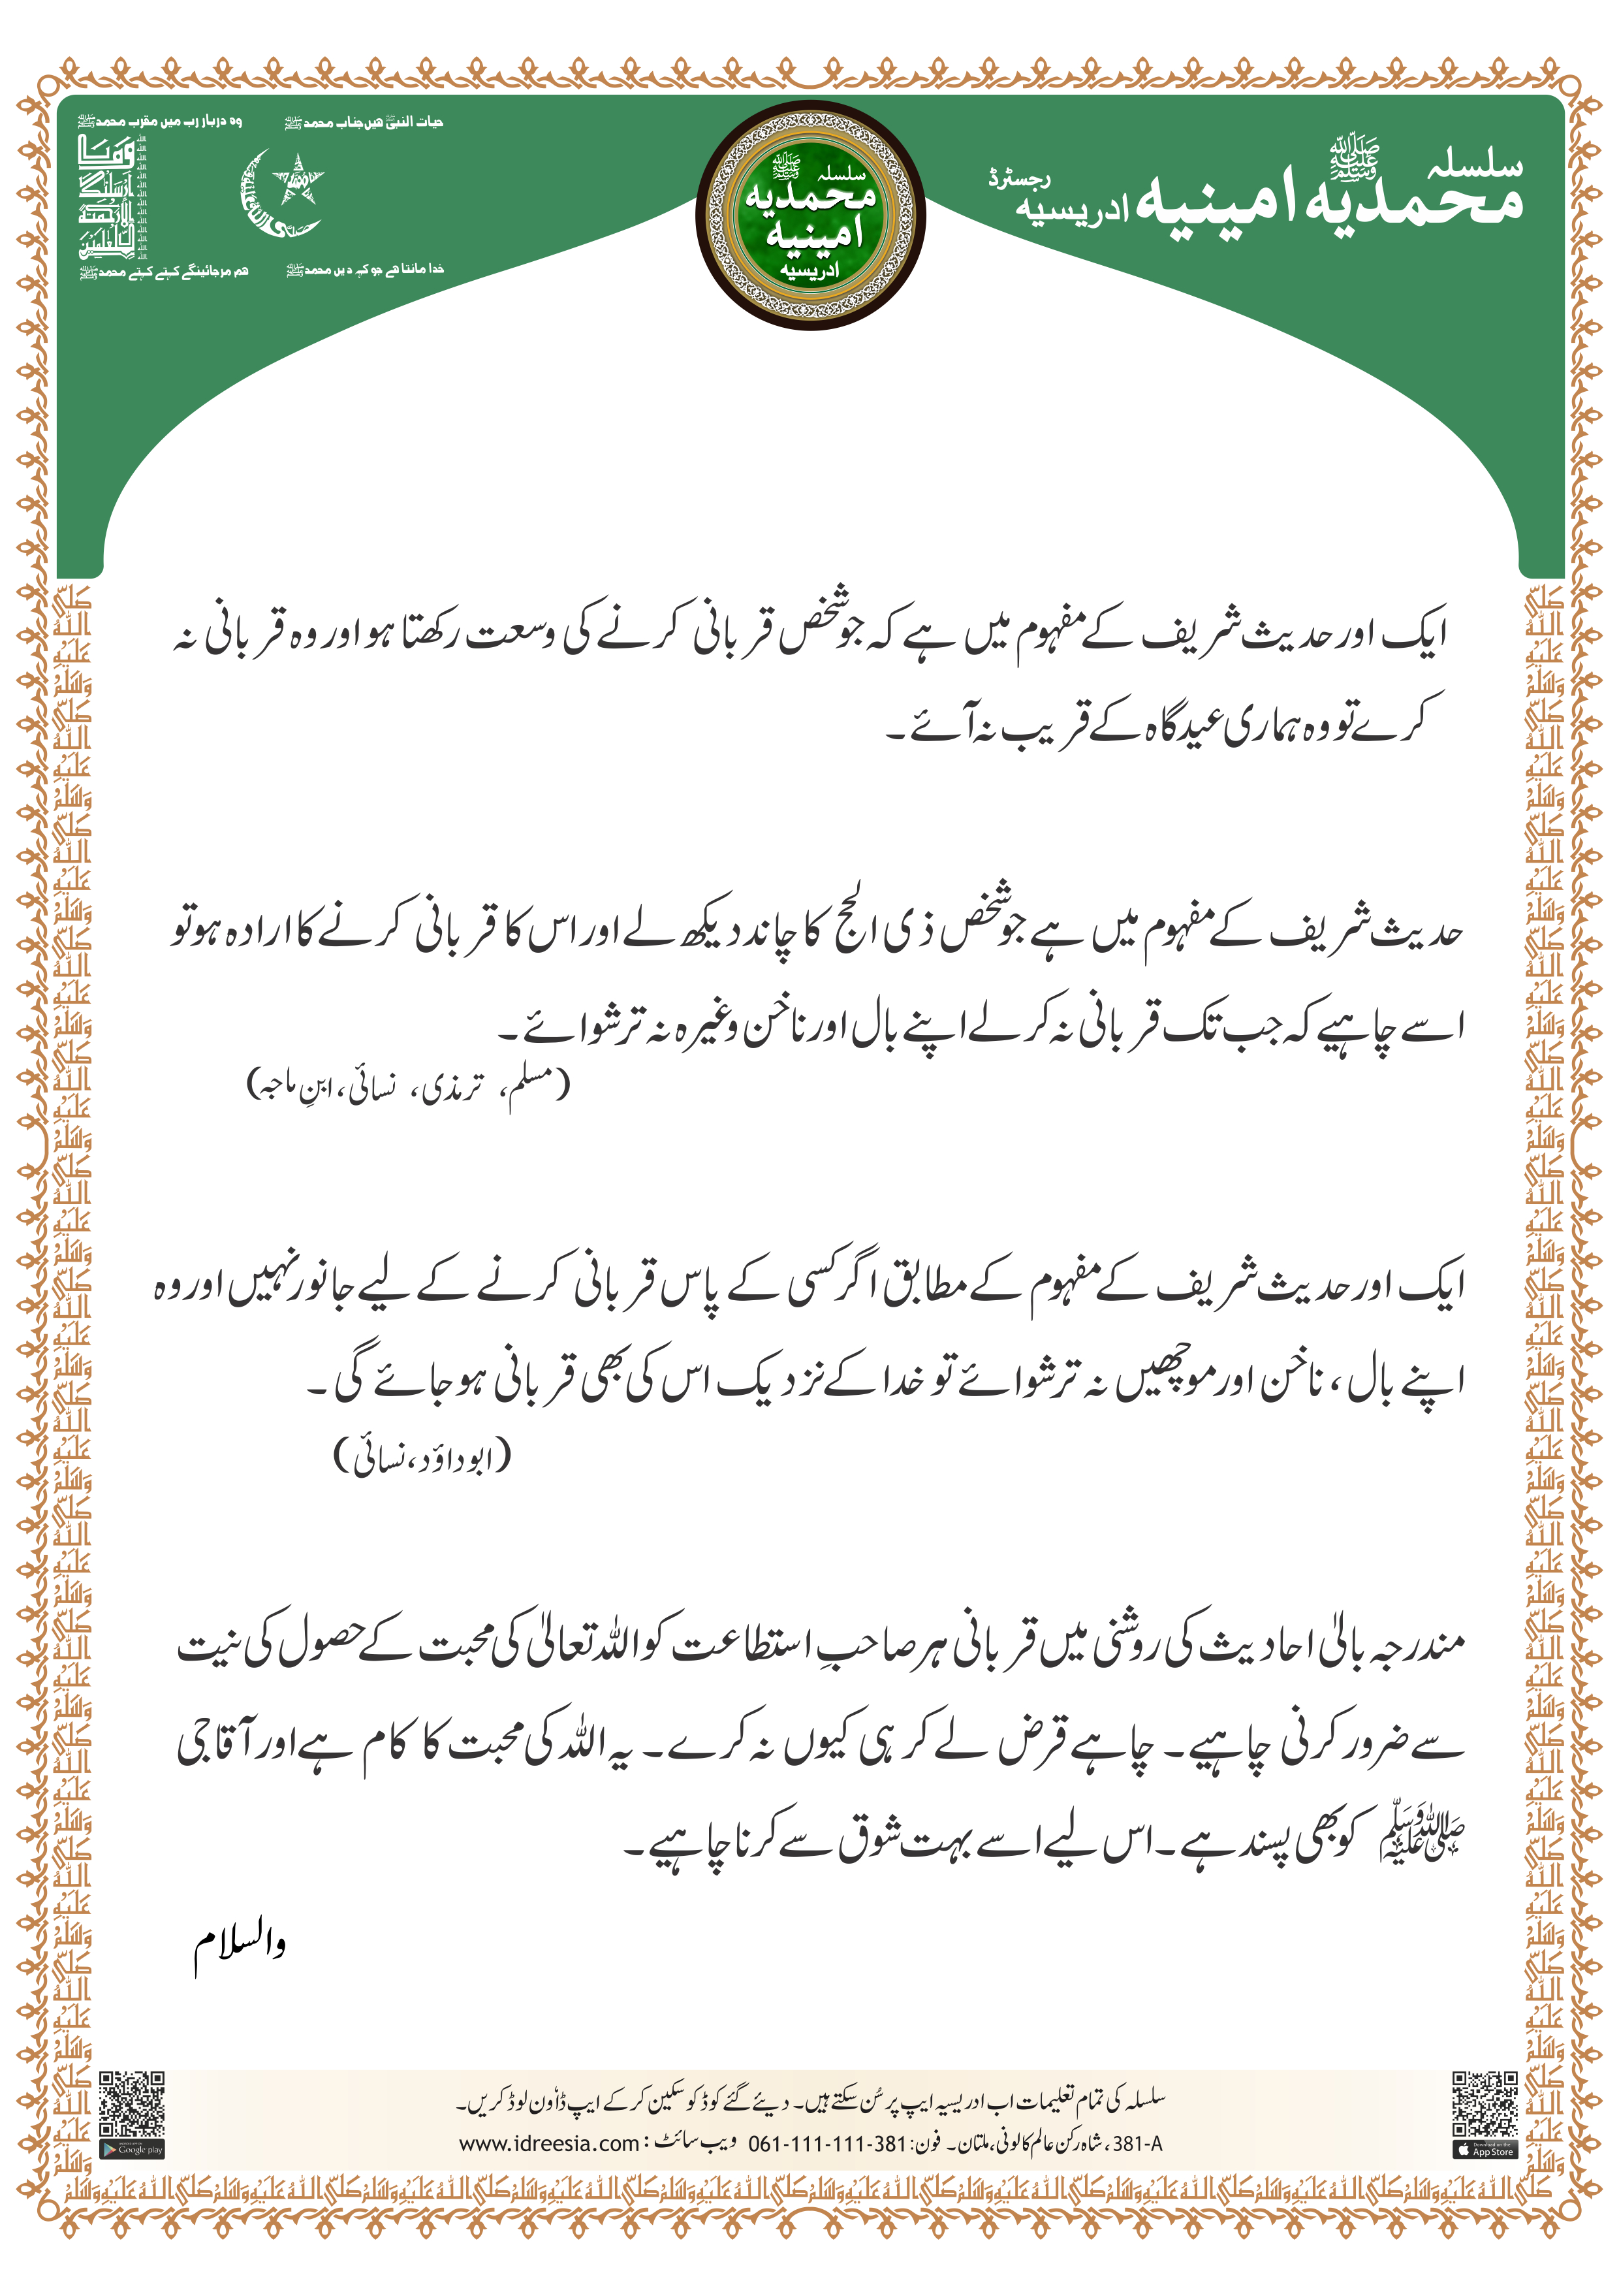 سلسلہ
محمدیہ ﷺ امینیہ ادریسیہ
رجسٹرڈ
سلسلہ ﷺ
محمدیہ
امینیہ
ادریسیہ
حیات النبیؐ ھیں جناب محمد ﷺ
وہ دربار رب میں مقرب محمد ﷺ
وَمَا
اَرْسَلْنٰکَ
اِلَّا رَحْمَۃً
لِّلْعٰلَمِیْن
خدا مانتا ھے جو کہہ دیں محمد ﷺ
ھم مرجائینگے کہتے کہتے محمد ﷺ
ایک اور حدیث شریف کے مفہوم میں ہے کہ جو شخص قربانی کرنے کی وسعت رکھتا ہو اور وہ قربانی نہ
کرے تو وہ ہماری عیدگاہ کے قریب نہ آئے۔
حدیث شریف کے مفہوم میں ہے جو شخص ذی الحج کا چاند دیکھ لے اور اس کا قربانی کرنے کا ارادہ ہو تو
اسے چاہیے کہ جب تک قربانی نہ کرلے اپنے بال اور ناخن وغیرہ نہ ترشوائے۔
(مسلم، ترمذی، نسائی، ابنِ ماجہ)
ایک اور حدیث شریف کے مفہوم کے مطابق اگر کسی کے پاس قربانی کرنے کے لیے جانور نہیں اور وہ
اپنے بال، ناخن اور مونچھیں نہ ترشوائے تو خدا کے نزدیک اس کی بھی قربانی ہوجائے گی۔
(ابوداؤد، نسائی)
مندرجہ بالیٰ احادیث کی روشنی میں قربانی ہر صاحبِ استطاعت کو اللہ تعالیٰ کی محبت کے حصول کی نیت
سے ضرور کرنی چاہیے۔ چاہے قرض لے کر ہی کیوں نہ کرے۔ یہ اللہ کی محبت کا کام ہے اور آقا جی
ﷺ کو بھی پسند ہے۔ اس لیے اسے بہت شوق سے کرنا چاہیے۔
والسلام
سلسلہ کی تمام تعلیمات اب ادریسیہ ایپ پر سُن سکتے ہیں۔ دیئے گئے کوڈ کو سکین کرکے ایپ ڈاؤن لوڈ کریں۔
381-A، شاہ رکن عالم کالونی، ملتان۔ فون: 061-111-111-381 ویب سائٹ: www.idreesia.com
Google play
Download on the
App Store
صَلَّی اللّٰہُ عَلَیْہِ وَسَلَّمْ